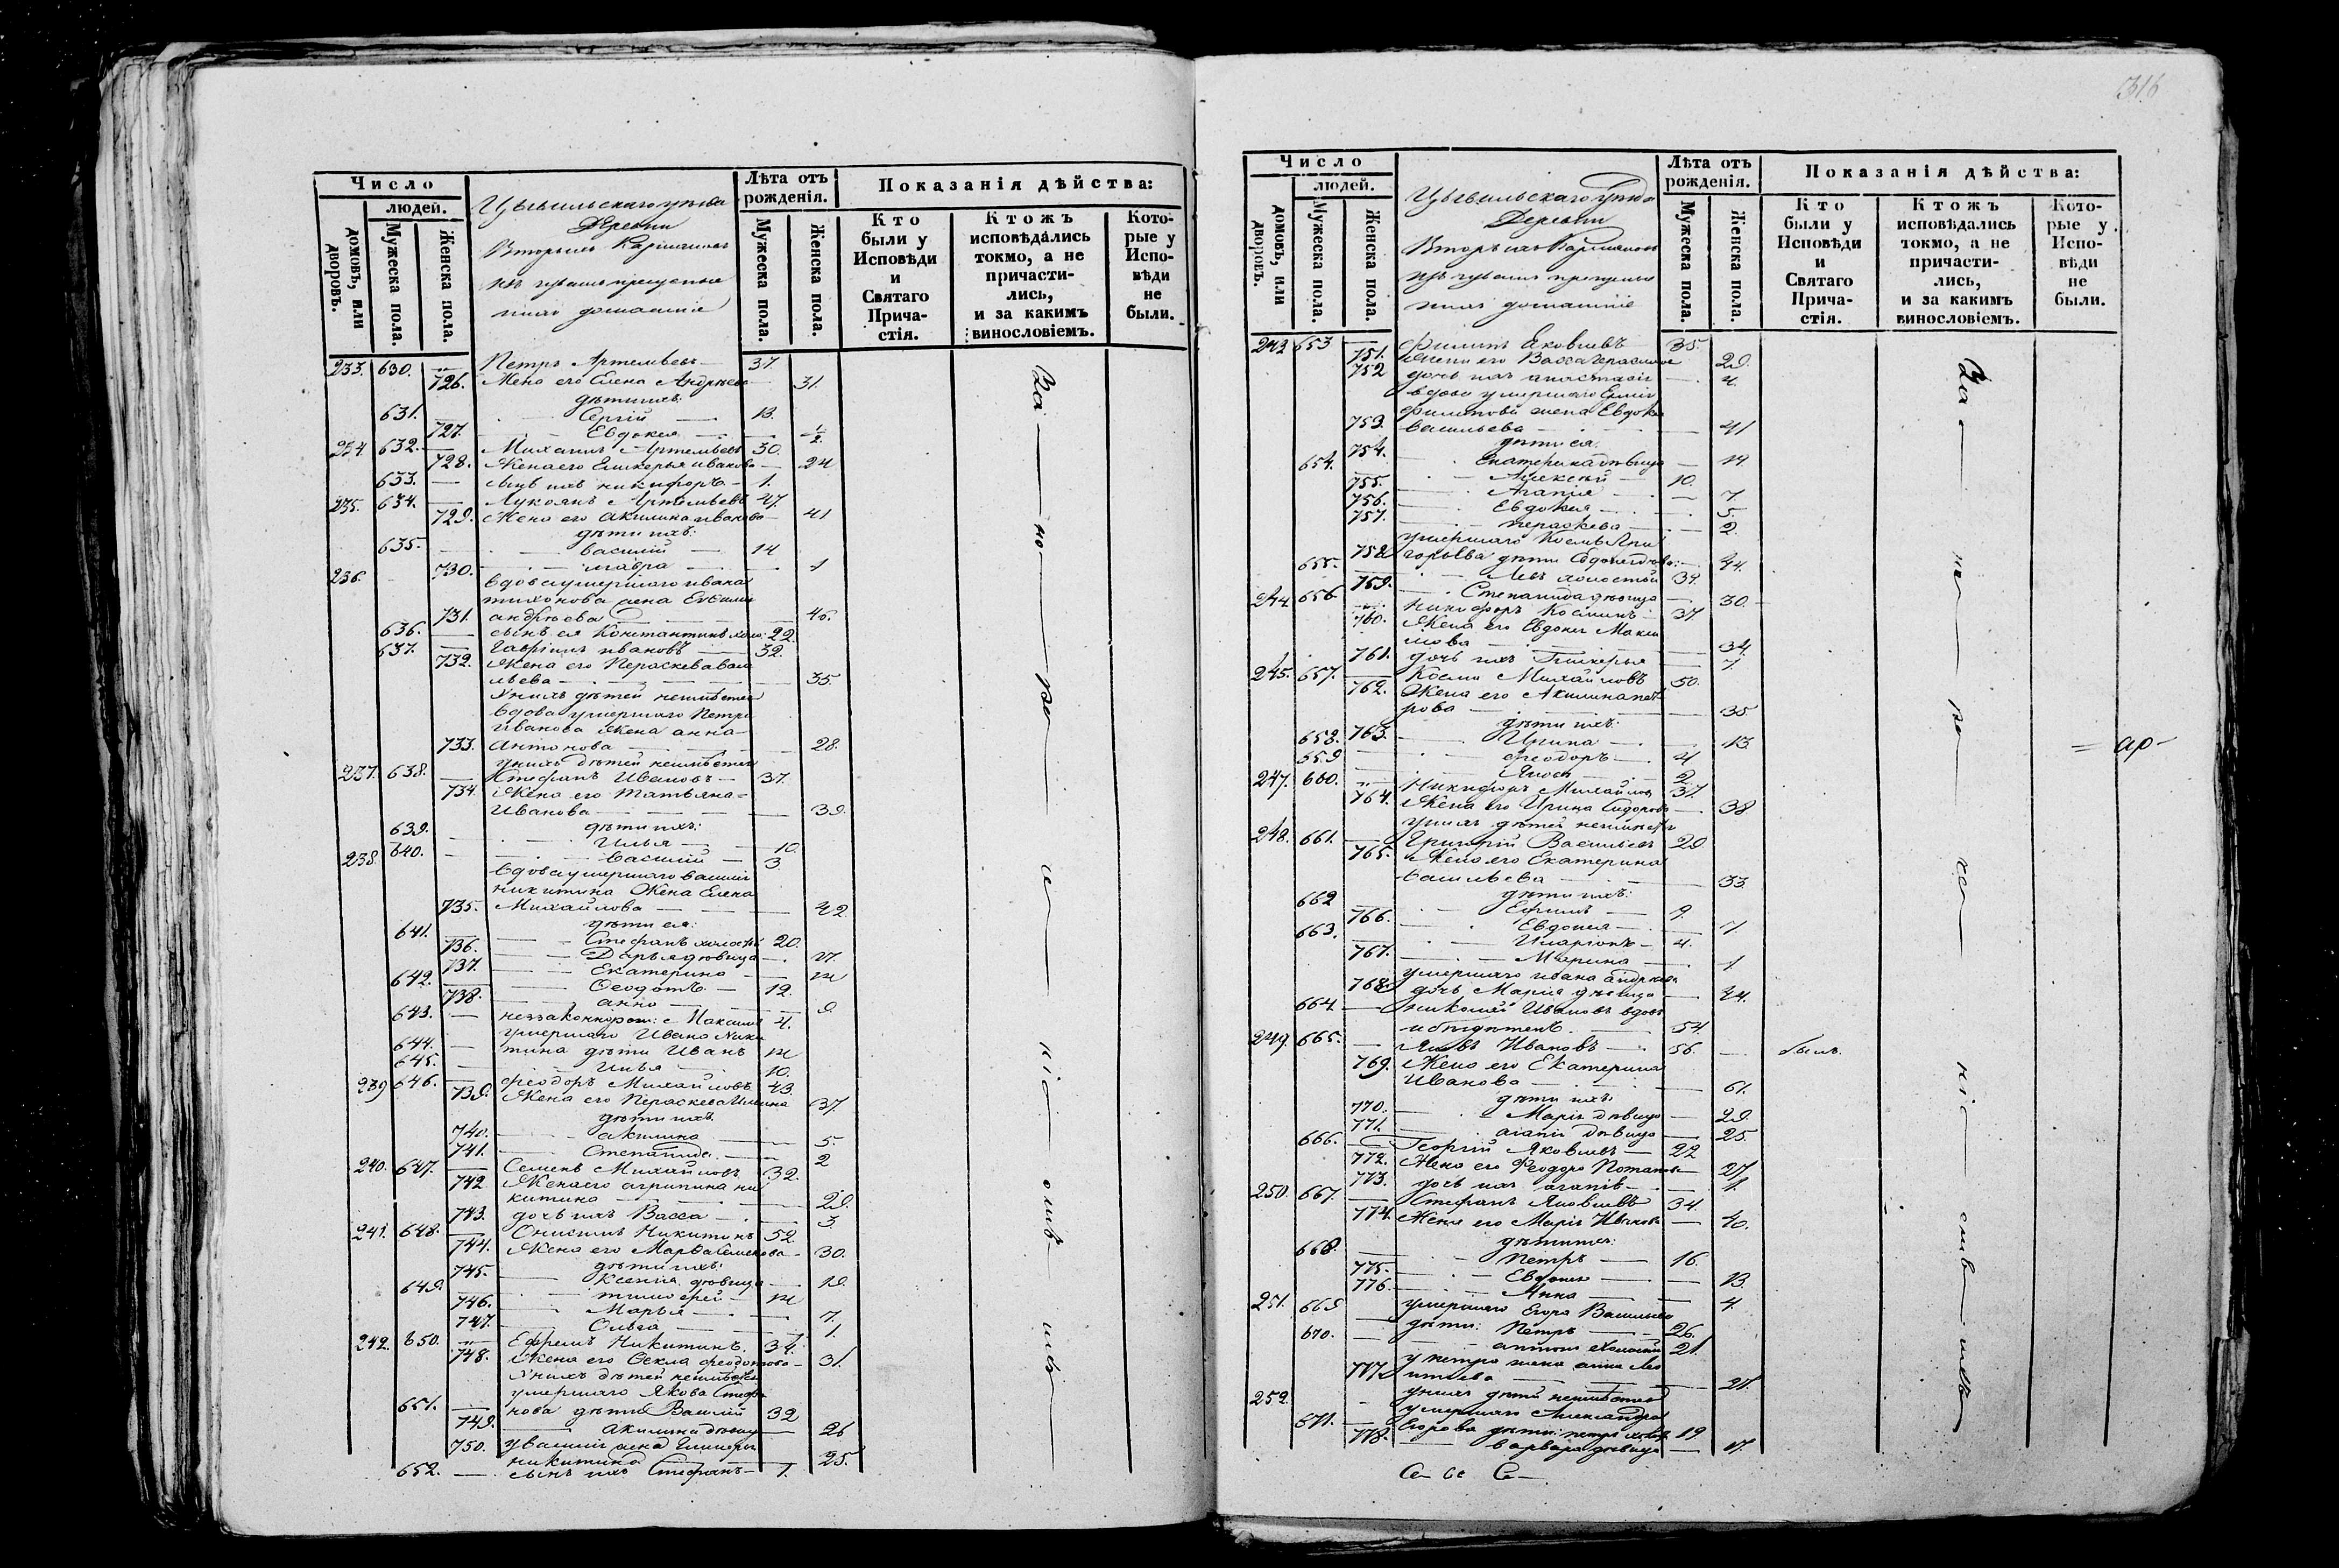 Число
людей.
домовъ, или дворовъ.
Мужеска пола.
Женска пола.
Цывильскаго уѣзда
Деревни
Вторыхъ
изъ чувашъ крещеныя
нихъ домашнія
Лѣта отъ рожденія.
Мужеска пола.
Женска пола.
Показанія дѣйства:
Кто были у Исповѣди и Святаго Причастія.
Ктожъ исповѣдались токмо, а не причастились, и за какимъ винословіемъ.
Которые у Исповѣди не были.
233. 630. Петръ Артемьевъ 37.
726. Жена его Елена Андреева 31.
дѣти ихъ:
631. Сергій 13.
727. Евдокея 1/2
234 632. Михаилъ Артемьевъ 30.
728. Жена его Гликерья иванова 24
633. сынъ ихъ никифоръ 1.
235. 634. Лукоянъ Артемьевъ 47.
729. Жена его акилина иванова 41
дѣти ихъ:
635. василій 14
730. мавра 1
236. вдова умершаго ивана
тихонова жена
731. андреева 46.
636. сынъ ея Константинъ холо: 22.
637. Гавріилъ ивановъ 32.
732. Жена его Пераскева васи
льева 35
У нихъ дѣтей неимѣется
вдова умершаго Петра
иванова жена анна
733. антонова 28.
у нихъ дѣтей неимѣется
237. 638. Стефанъ Ивановъ 37.
734. Жена его Татьяна
Иванова 39.
дѣти ихъ:
639. Илья 10.
640. василій 3.
238. вдова умершаго василія
никитина Жена Елена
735. Михайлова 42
дѣти ея:
641. Стефанъ холостъ 20.
736. Дарья дѣвица 17.
737. Екатерина 14
642. Ѳеодотъ 12.
738. анна 9
643. незаконнорож: Максимъ 4.
умершаго Ивана Ники
644. тина дѣти Иванъ 14
645. Илья 10.
239 646. Ѳеодоръ Михайловъ 43.
739. Жена его Пераскева Ильина 37.
дѣти ихъ
740. акилина 5.
741. Степанида 2
240. 647. Семенъ Михайловъ 32.
742. Жена его агрипина ни
китина 29.
743. дочь ихъ Васса 3.
241. 648. Онисимъ Никитинъ 52.
744. Жена его Марва Семенова 30.
дѣти ихъ:
745. Ксенія дѣвица 19.
649. тимофей 14
746. Марья 7.
747. Ольга 1.
242. 650. Ефремъ Никитинъ. 34.
748. Жена его Ѳекла Ѳеодотова 31.
У нихъ дѣтей неимѣется
умершаго Якова Стефа
651. нова дѣти Василій 32
749. акилина дѣвица 26
750. у василія жена Гликерья
никитина 25.
652. сынъ ихъ Стефанъ 1.
За но во и ні омъ
316
Число
людей.
домовъ, или дворовъ.
Мужеска пола.
Женска пола.
Цывильскаго уѣзда
Деревни
Вторыхъ
изъ чувашъ крещеныя
нихъ домашніе
Лѣта отъ рожденія.
Мужеска пола.
Женска пола.
Показанія дѣйства:
Кто были у Исповѣди и Святаго Причастія.
Ктожъ исповѣдались токмо, а не причастились, и за какимъ винословіемъ.
Которые у Исповѣди не были.
242 653 Филипъ Яковлевъ 35.
751. Жена его Васса 29.
752 дочь ихъ анастасія 4.
вдова умершаго
Филипова жена Евдокея
753. васильева 41
дѣти ея:
754. Екатерина дѣвица 14
654. Алексѣй 10.
755. Агапія 7.
756. Евдокея 5.
757. пераскева 2.
умершаго Космы Гри
758. горьева дѣти Евдокея 44.
655. Левъ холостой 34.
759. Степанида дѣвица 30.
244. 656 Никифоръ Косминъ 37.
760. Жена его Евдокея Макси
мова 34.
761. дочь ихъ Гликерья 7.
245. 657. Косма Михайловъ 50.
762. Жена его Акилина пет
рова 35
дѣти ихъ:
763. Ирина 13
658. Ѳеодоръ 4
659 Яковъ 2.
247. 660. Никифоръ Михайловъ 37.
764. Жена его Ирина Сидорова 38
у нихъ дѣтей неимѣется
248. 661. Григорій Васильевъ 29
765. Жена его Екатерина
васильева 33.
дѣти ихъ:
662 Ефимъ 9.
766. Евдокея 7.
663. Иларіонъ 4.
767. Марина 1.
умершаго ивана андреева
768. дочь Марія дѣвица 44.
664. николай Ивановъ вдовъ
и бездѣтенъ 54.
249. 665. Яковъ Ивановъ 56. былъ.
769. Жена его Екатерина
Иванова 61.
дѣти ихъ:
770. Марія дѣвица 29.
771. агапія дѣвица 25.
666. Георгій Яковлевъ 22
772. Жена его Ѳеодора Потапова 27.
773. дочь ихъ агапія 1.
250. 667. Стефанъ Яковлевъ 34.
774. Жена его Марія Иванова 40.
дѣти ихъ:
668. Петръ 16.
775. Евдокея 13.
776. Анна 4.
251. 669 умершаго Егора Васильева
дѣти: Петръ 26.
670. антонъ холостъ 21.
777. у петра жена анна Лео
нтьева 27.
252. у нихъ дѣтей неимѣется
умершаго Александра
671. Егорова дѣти: петръ холост 19
778. варвара дѣвица 17.
За но во ні омъ
= ар-